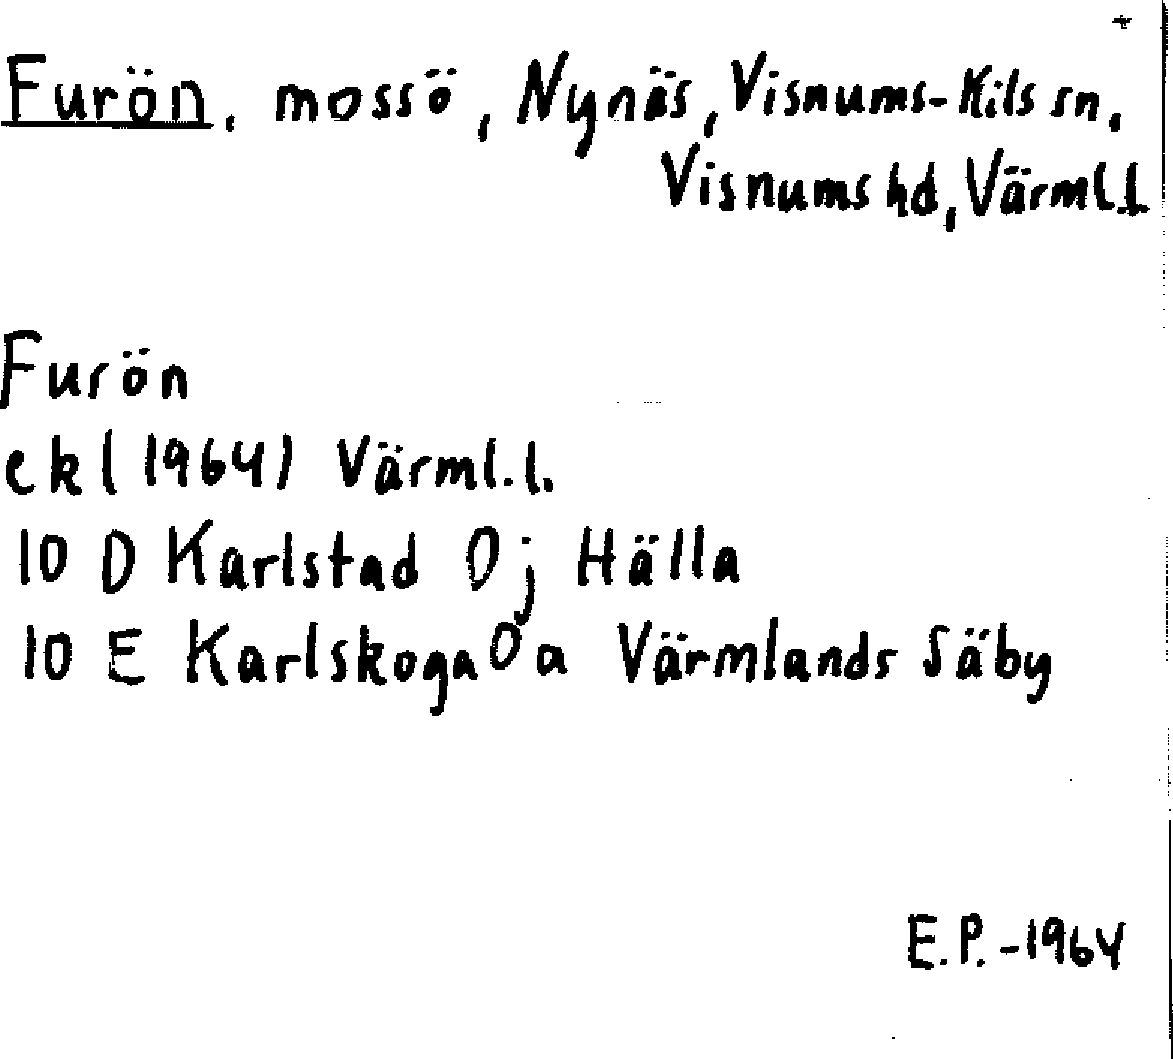 Furön, mossö, Nynäs, Visnums-Kils sn,
Visnums hd, Värml.l.
Furön
ek (1964) Värml.l.
10 D Karlstad 0j Hälla
10 E Karlskoga 0a Värmlands Säby
E.P. -1964